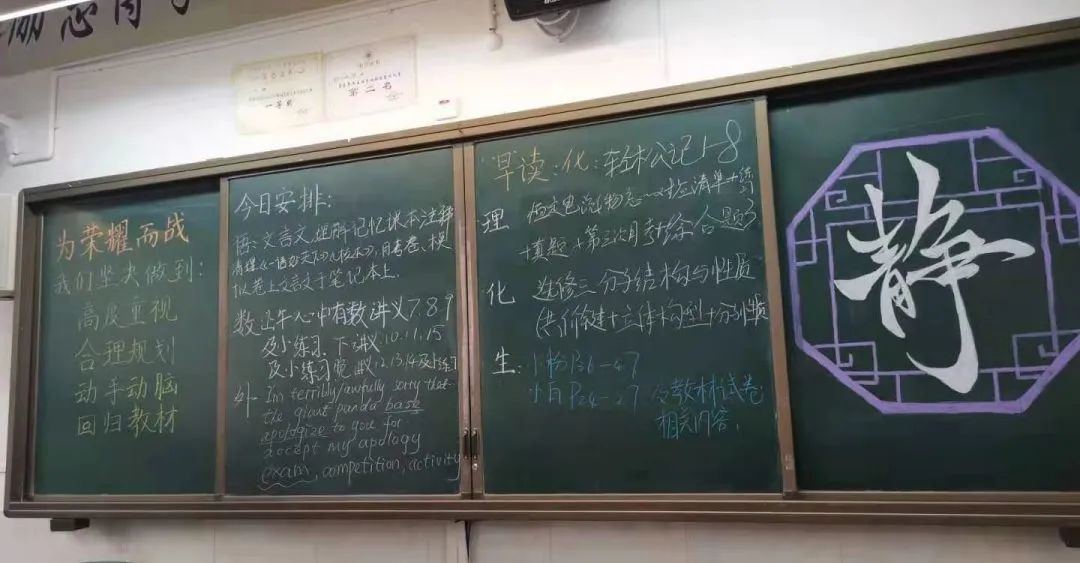 励志
一等奖
第二名
为荣耀而战
我们坚决做到:
高度重视
合理规划
动手动脑
回归教材
今日安排:
语:文言文,理解记忆课本注释
清理《一语君天下》(校本),月考卷、模
拟卷上文言文于笔记本上.
数:上午人心中有数讲义7.8.9
及小练习.下:讲义10.11.15
及小练习 晚:讲义12.13.14及小练习
外 I'm terribly/awfully sorry that
the giant panda bask
apologize to you for
accept my apology
exam, competition, activity
早读:化:轻松公记1-8
理 恒定电流(物态一对应清单+练习
+真题+第三次月考+综合题)
化 选修三 分子结构与性质
(共价键+立体构型+分子性质
生: 小粉P36-47
小白P24-27 及教材试卷
相关内容.
静